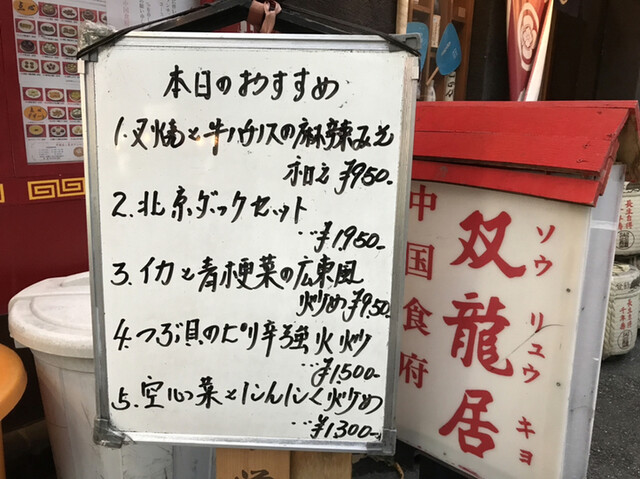 本日のおすすめ
1.叉焼と牛ハツの麻辣みそ
和え ¥950-
2.北京ダックセット
…¥1950-
3.イカと青梗菜の広東風
炒め ¥950.
4.つぶ貝のピリ辛強火炒
…¥1500-
5.空心菜とにんにく炒め
…¥1300-
中国食府
双龍居
ソウ リュウ キョ